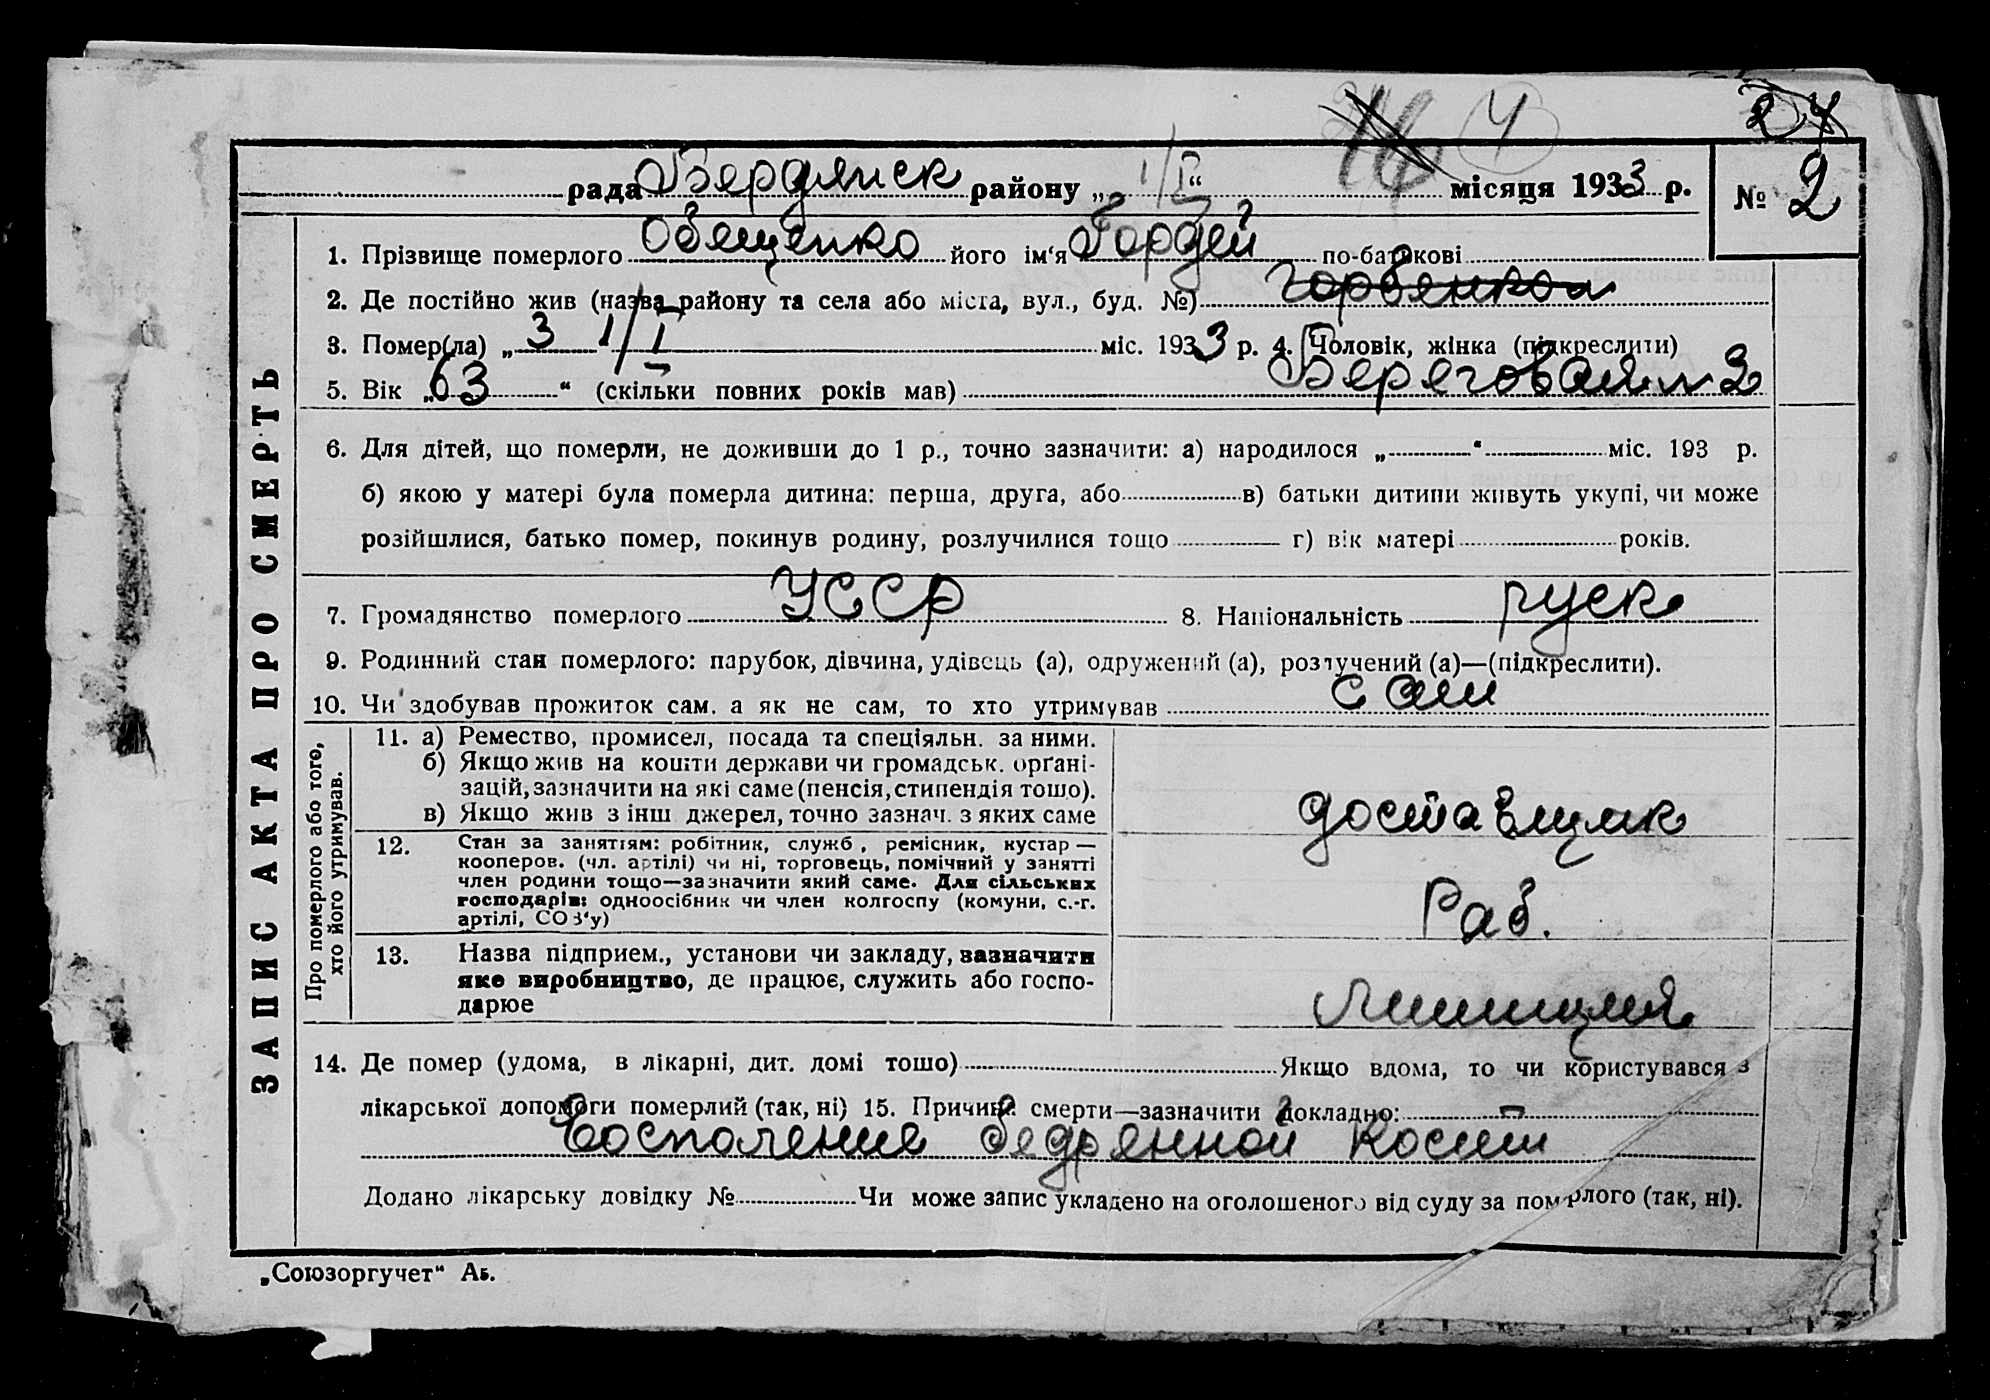 4
24
рада Бердянск району „ 1/I “ місяця 1933 р. № 2
ЗАПИС АКТА ПРО СМЕРТЬ
1. Прізвище померлого Обещенко його ім‘я Гордей по-батькові
2. Де постійно жив (назва району та села або міста, вул., буд. №)
3. Помер(ла) „ 3 1/I міс. 1933 р. 4. Чоловік, жінка (підкреслити)
5. Вік „ 63 “ (скільки повних років мав) Береговая 3
6. Для дітей, що померли, не доживши до 1 р., точно зазначити: а) народилося „ “ міс. 193 р.
б) якою у матері була померла дитина: перша, друга, або в) батьки дитини живуть укупі, чи може
розійшлися, батько помер, покинув родину, розлучилися тощо г) вік матері років.
7. Громадянство померлого УССР 8. Національність руск
9. Родинний стан померлого: парубок, дівчина, удівець (а), одружений (а), розлучений (а)—(підкреслити).
10. Чи здобував прожиток сам. а як не сам, то хто утримував сам
Про померлого або того,
хто його утримував.
11. а) Ремество, промисел, посада та спеціяльн. за ними.
б) Якщо жив на кошти держави чи громадськ. орґані-
зацій, зазначити на які саме (пенсія, стипендія тощо).
в) Якщо жив з інш джерел, точно зазнач. з яких саме
доставщик
12. Стан за заняттям: робітник, служб, ремісник, кустар —
кооперов. (чл. артілі) чи ні, торговець, помічний у занятті
член родини тощо—зазначити який саме. Для сільських
господарів: одноосібник чи член колгоспу (комуни, с.-г.
артілі, СОЗ‘у)
Раб.
13. Назва підприєм., установи чи закладу, зазначити
яке виробництво, де працює, служить або госпо-
дарює
Милиция
14. Де помер (удома, в лікарні, дит. домі тощо) Якщо вдома, то чи користувався з
лікарської допомоги померлий (так, ні) 15. Причина смерти—зазначити докладно:
Восполение бедренной кости
Додано лікарську довідку № Чи може запис укладено на оголошеного від суду за померлого (так, ні).
„Союзоргучет“ Аб.